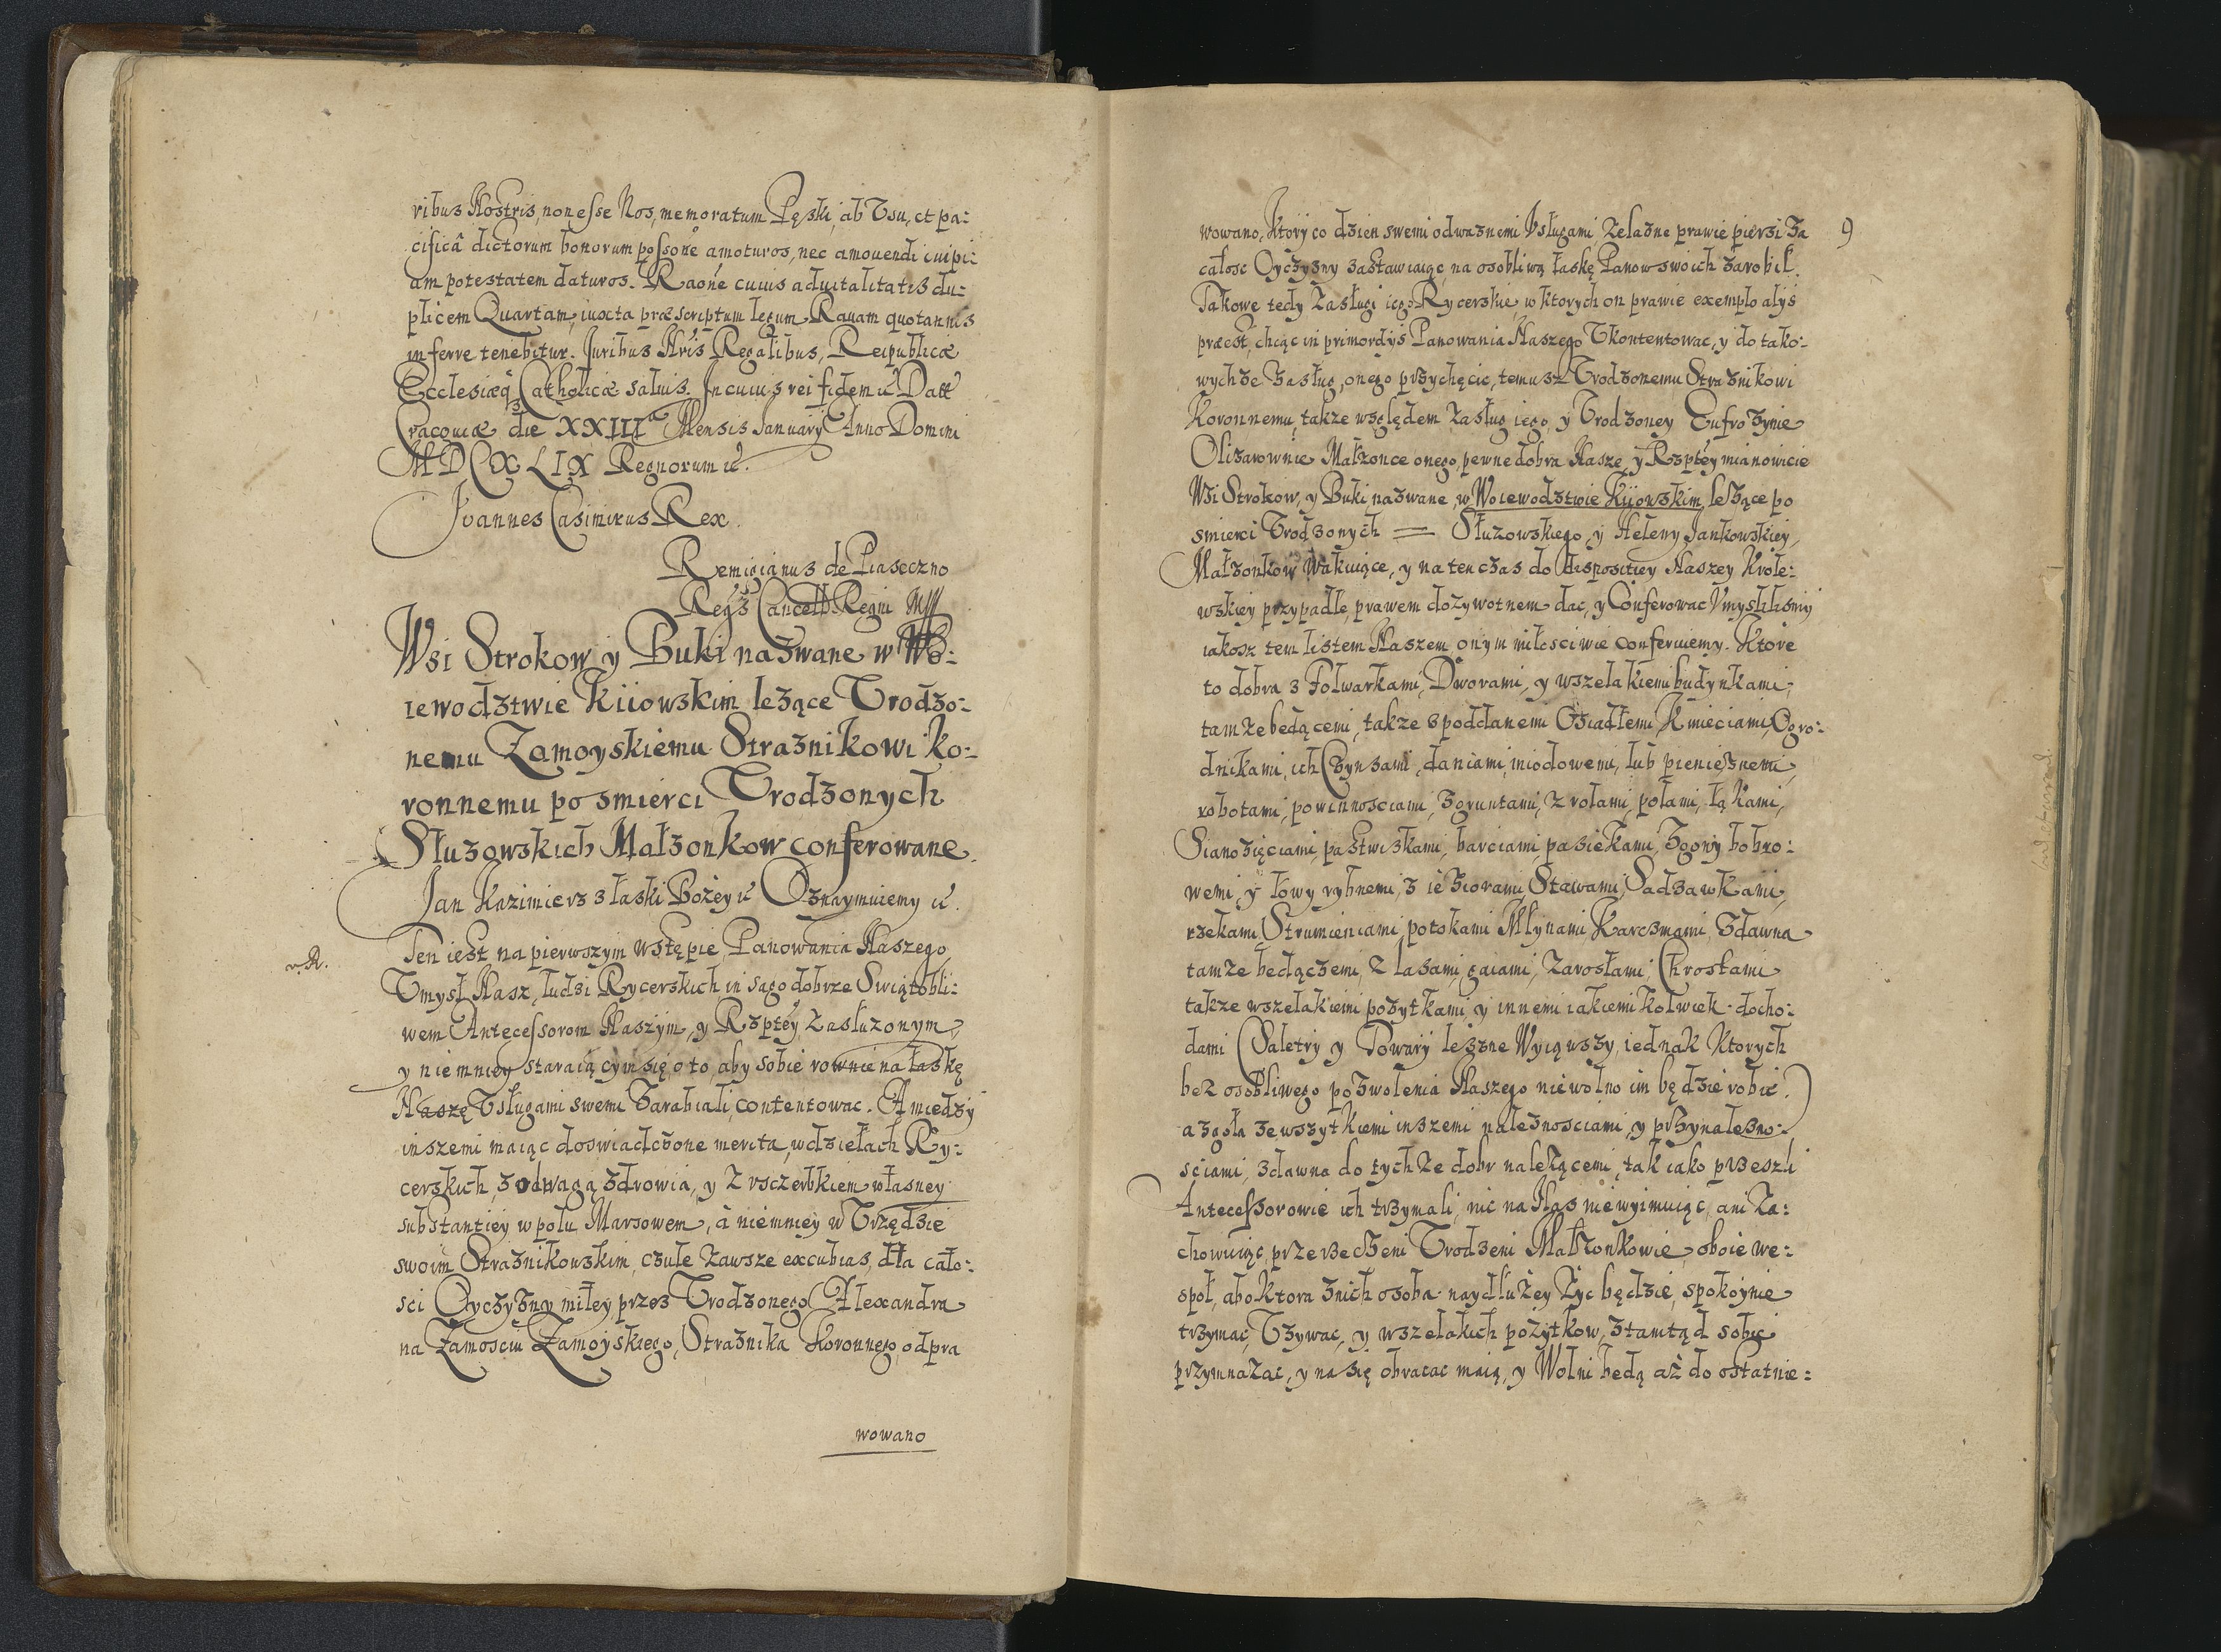 ribus Nostris, non esse Nos, memoratum Pęski, ab Usu, et pa:
cificâ dictorum bonorum possone amoturos, nec amovendi cuipi:
am potestatem daturos. Raone cuius advitalitatis du:
plicem Quartam, iuxta præscriptum legum Ravam quotannis
inferre tenebitur. Juribus Nris Regalibus, Reipublicæ
Ecclesiæq Catholicæ salvis. In cuius rei fidem &c Datt
Cracoviæ die XXIII Mensis January Anno Domini
MDCXLIX Regnorum &c.
Joannes Casimirus Rex.
Remigianus de Piaseczno
Regs Cancell. Regni
Wsi Strokow y Buki nazwane w Wo:
iewodztwie Kiiowskim leżące Urodzo:
nemu Zamoyskiemu Strażnikowi ko:
ronnemu po smierci Urodzonych
Służowskich Małżonkow conferowane.
Jan Kazimierz z łaski Bożey &c Oznaymuiemy &c.
v. R.
Ten iest na pierwszym wstępie Panowania Naszego
Umysł Nasz, ludzi Rycerskich in sago dobrze Swiątobli:
wem Antecessorom Naszym, y Rzptey zasłużonym
y niemniey staraiącym się o to, aby sobie rownie na łaskę
Naszę Usługami swemi Zarabiali, contentowac. A miedzy
inszemi maiąc doswiadczone merita, w dziełach Ry:
cerskich, z odwagą zdrowia, y z uszczerbkiem własney
substantiey w polu Marsowem, a niemniey w Urzędzie
swoim Strażnikowskim, czułe zawsze excubias, dla cało:
sci Oyczyzny miłey, przez Urodzonego Alexandra
na Zamosciu Zamoyskiego, Strażnika Koronnego, odpra
wowano
9
wowano, Ktory co dzien swemi odważnemi Usługami, żelazne prawie piersi za
całosc Oyczyzny zastawiaiąc, na osobliwą łaskę Panow swoich zarobił.
Takowe tedy Zasługi iego Rycerskie, w ktorych on prawie exemplo alys
præest, chcąc in primordys Panowania Naszego Ukontentowac, y do tako:
wychze zasług, onego przychęcic, temusz Urodzonemu Strażnikowi
Koronnemu, takze względem zasług iego, y Urodzoney Eufrozynie
Olizarownie Małżonce onego, pewne dobra Nasze y Rzptey mianowicie
Wsi Strokow, y Buki nazwane, w Woiewodztwie Kiiowskim leżące po
smierci Urodzonych = Służowskiego, y Heleny Jankowskiey,
Małżonkow wakuiące, y na ten czas do dispositiey Naszey Krole:
wskiey przypadłe, prawem dożywotnem dac, y Conferowac Umyslilismy
iakosz tem listem Naszem onym miłosciwie conferuiemy. Ktore
to dobra z Folwarkami, Dworami, y wszelakiemi budynkami,
tamże bedącemi, takze z poddanemi Osiadłemi Kmieciami, Ogro:
dnikami, ich Czynszami, daniami, miodowemi, lub pienieżnemi,
robotami, powinnosciami, z gruntami, z rolami, polami, łąkami,
Sianozięciami, pastwiskami, barciami, pasiekami, Zgony bobro:
wemi, y łowy rybnemi, z ieziorami, Stawami, Sadzawkami,
rzekami, Strumieniami, potokami, Młynami, Karczmami, zdawna
tamże będączemi, z lasami, gaiami, zarosłami, Chrostami
takze wszelakiemi pożytkami, y innemi iakiemikolwiek docho:
dami (Saletry y Towary lesne Wyiąwszy, iednak Ktorych
bez osobliwego pozwolenia Naszego niewolno im będzie robic.)
a zgoła ze wszytkiemi inszemi należnosciami, y przynależno:
sciami, zdawna do tychże dobr należącemi, tak iako przeszli
Antecessorowie ich trzymali, nic na Nas niewyimuiąc, ani Za:
chowuiąc, przerzeczeni Urodzeni Małżonkowie, oboie we:
społ, abo ktora z nich osoba naydłużey życ będzie, spokoynie
trzymac, Uzywac, y wszelakich pożytkow, ztamtąd sobie
przymnażac, y na się obracac maią, y Wolni będą aż do ostatnie: